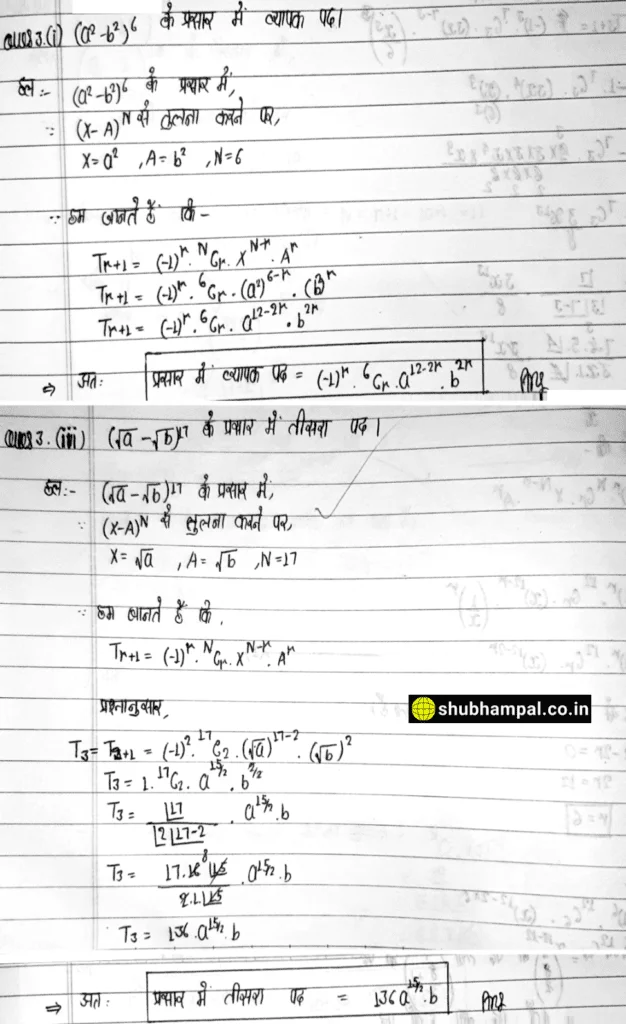 Ques 3.(i) (a²-b²)⁶ के प्रसार में व्यापक पद।
हल:- (a²-b²)⁶ के प्रसार में,
∵ (X-A)ᴺ से तुलना करने पर,
X=a² , A=b² , N=6
∵ हम जानते हैं कि-
Tr+1 = (-1)^r . ᴺCr . X^N-r . A^r
Tr+1 = (-1)^r . ⁶Cr . (a²)^6-r . (b²)^r
Tr+1 = (-1)^r . ⁶Cr . a^12-2r . b^2r
⇒ अतः प्रसार में व्यापक पद = (-1)^r . ⁶Cr . a^12-2r . b^2r Ans
Ques 3.(iii) (√a - √b)¹⁷ के प्रसार में तीसरा पद।
हल:- (√a - √b)¹⁷ के प्रसार में,
∵ (X-A)ᴺ से तुलना करने पर,
X = √a , A = √b , N=17
∵ हम जानते हैं कि,
Tr+1 = (-1)^r . ᴺCr . X^N-r . A^r
प्रश्नानुसार,
shubhampal.co.in
T3 = T2+1 = (-1)² . ¹⁷C2 . (√a)^17-2 . (√b)²
T3 = 1 . ¹⁷C2 . a^15/2 . b^2/2
T3 = |17 / |2 |17-2 . a^15/2 . b
T3 = 17.16 8 |15 / 2.1.|15 . a^15/2 . b
T3 = 136 . a^15/2 . b
⇒ अतः प्रसार में तीसरा पद = 136 a^15/2 . b Ans